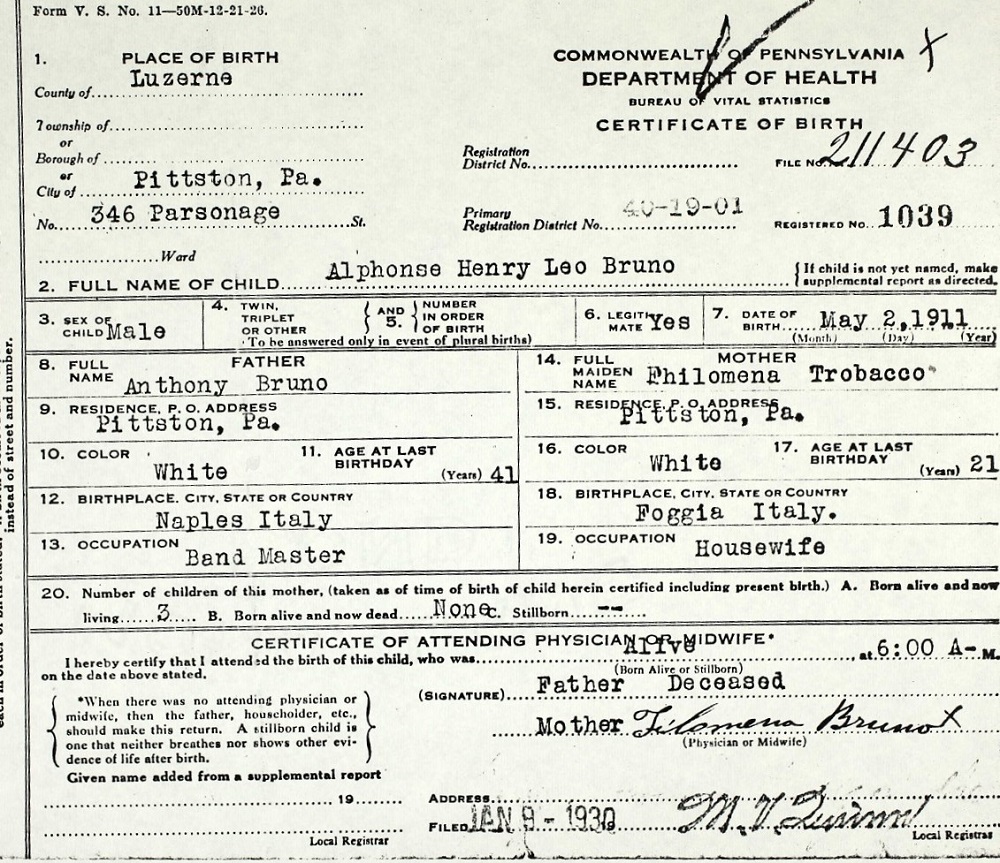 Form V. S. No. 11—50M-12-21-26.
1. PLACE OF BIRTH
County of Luzerne
Township of
or
Borough of
or
City of Pittston, Pa.
No. 346 Parsonage St.
Ward
COMMONWEALTH OF PENNSYLVANIA X
DEPARTMENT OF HEALTH
BUREAU OF VITAL STATISTICS
CERTIFICATE OF BIRTH
Registration
District No. FILE No. 211403
Primary
Registration District No. 40-19-01 REGISTERED No. 1039
2. FULL NAME OF CHILD Alphonse Henry Leo Bruno
If child is not yet named, make
supplemental report as directed.
3. SEX OF
CHILD Male
4. TWIN,
TRIPLET
OR OTHER
AND
5.
NUMBER
IN ORDER
OF BIRTH
To be answered only in event of plural births)
6. LEGITI
MATE Yes
7. DATE OF
BIRTH May 2,1911
(Month) (Day) (Year)
FATHER
8. FULL
NAME Anthony Bruno
9. RESIDENCE, P. O. ADDRESS
Pittston, Pa.
10. COLOR White
11. AGE AT LAST
BIRTHDAY (Years) 41
12. BIRTHPLACE, CITY, STATE OR COUNTRY
Naples Italy
13. OCCUPATION
Band Master
MOTHER
14. FULL
MAIDEN
NAME Philomena Trobacco
15. RESIDENCE P. O. ADDRESS
Pittston, Pa.
16. COLOR White
17. AGE AT LAST
BIRTHDAY (Years) 21
18. BIRTHPLACE, CITY, STATE OR COUNTRY
Foggia Italy.
19. OCCUPATION
Housewife
20. Number of children of this mother, (taken as of time of birth of child herein certified including present birth.) A. Born alive and now
living 3 B. Born alive and now dead None C. Stillborn --
CERTIFICATE OF ATTENDING PHYSICIAN OR MIDWIFE*
I hereby certify that I attended the birth of this child, who was Alive, at 6:00 A- M.
on the date above stated. (Born Alive or Stillborn)
*When there was no attending physician or
midwife, then the father, householder, etc.,
should make this return. A stillborn child is
one that neither breathes nor shows other evi-
dence of life after birth.
(SIGNATURE) Father Deceased
Mother Filomena Bruno X
(Physician or Midwife)
Given name added from a supplemental report
19
Local Registrar
ADDRESS
FILED JAN 9 - 1930 M. V.
Local Registrar
instead of street and number.